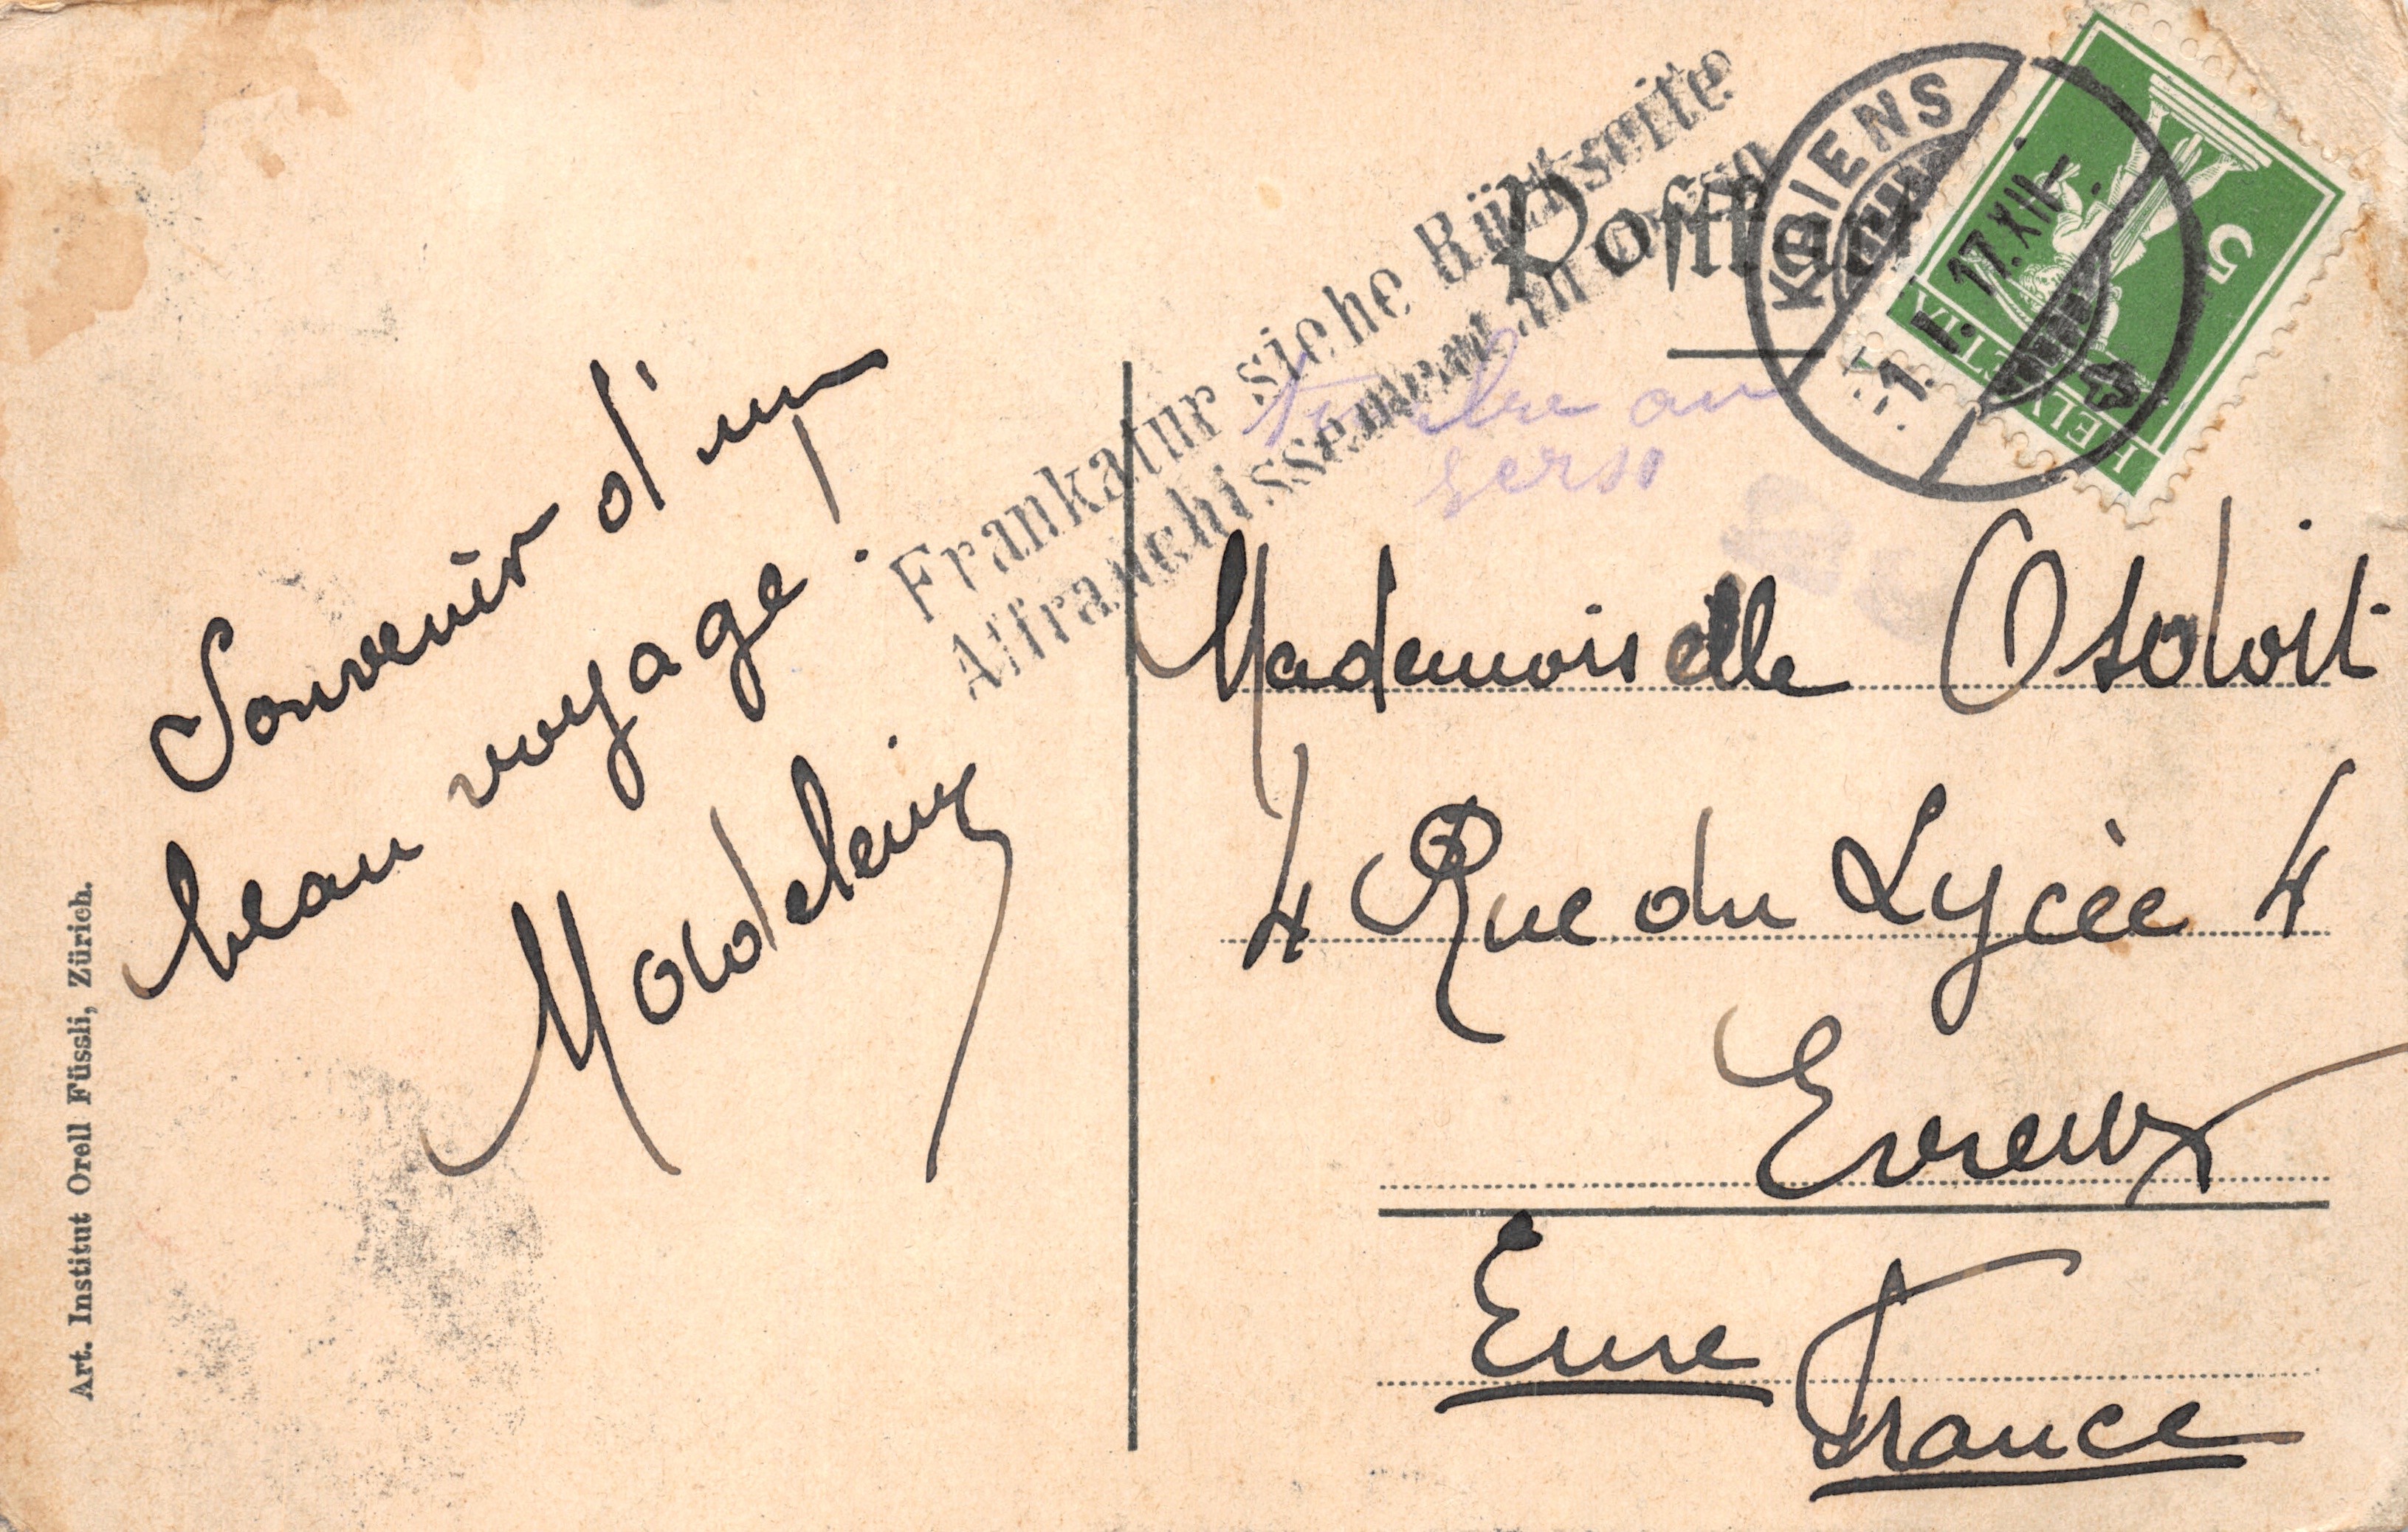 Souvenir d'un
beau voyage.
Madeleine
Art. Institut Orell Füssli, Zürich.
Frankatur siehe Rückseite
Affranchissement au verso
Postkart
Timbre au
verso
KRIENS
-1. I. 17. XII-
HELVETIA
5
Mademoiselle
4 Rue du Lycée 4
Evreux
Eure
France